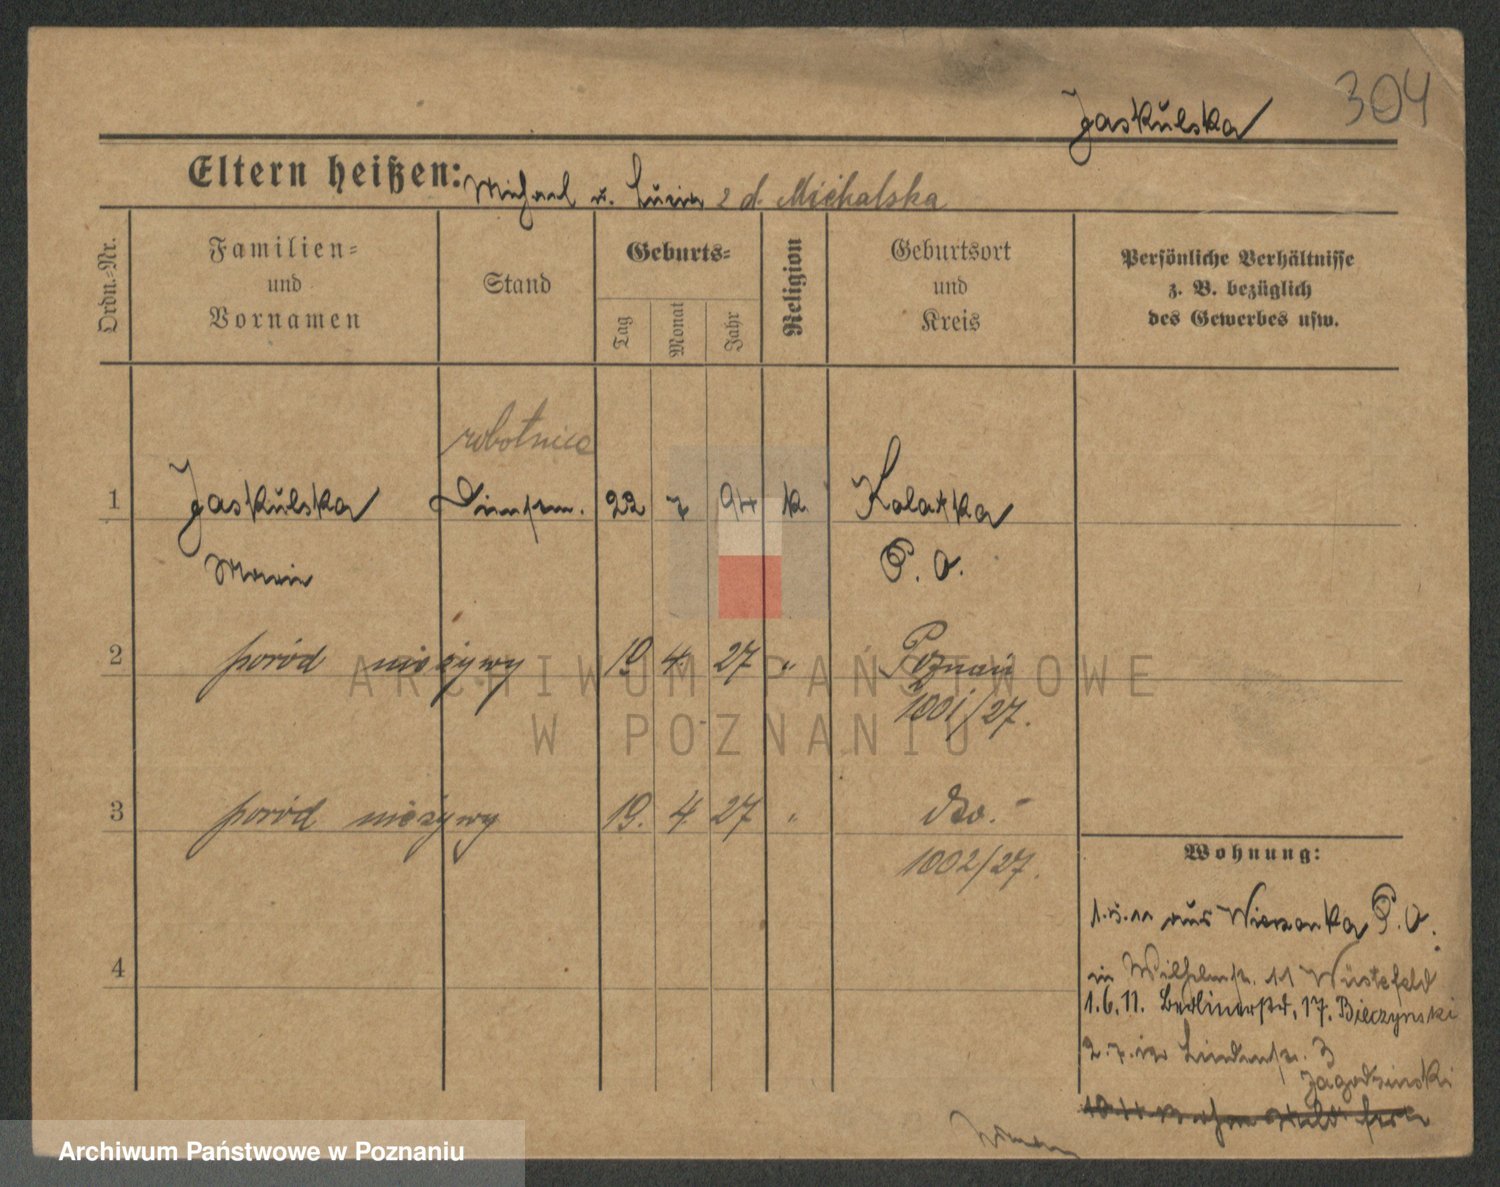 304
Jaskulska
Eltern heißen: Michael u. Lucia z d. Michalska
Ordn.-Nr.
Familien-
und
Vornamen
Stand
Geburts-
Tag
Monat
Jahr
Religion
Geburtsort
und
Kreis
Persönliche Verhältnisse
z. B. bezüglich
des Gewerbes usw.
robotnica
1 Jaskulska Dienstm. 22 7 94 k Kolatka
Maria P. O.
2 poród nieżywy 19 4. 27 " Poznań
1001/27.
3 poród nieżywy 19. 4. 27 " dto. -
1002/27.
Wohnung:
1.5.11 aus Wierzonka P. O.
in Wilhelmstr. 11 Wüstefeld
1.6.11. Berlinerstr. 17. Bieczynski
2.7.12 Lindenstr. 3
Jagodzinski
4
ARCHIWUM PAŃSTWOWE
W POZNANIU
Archiwum Państwowe w Poznaniu